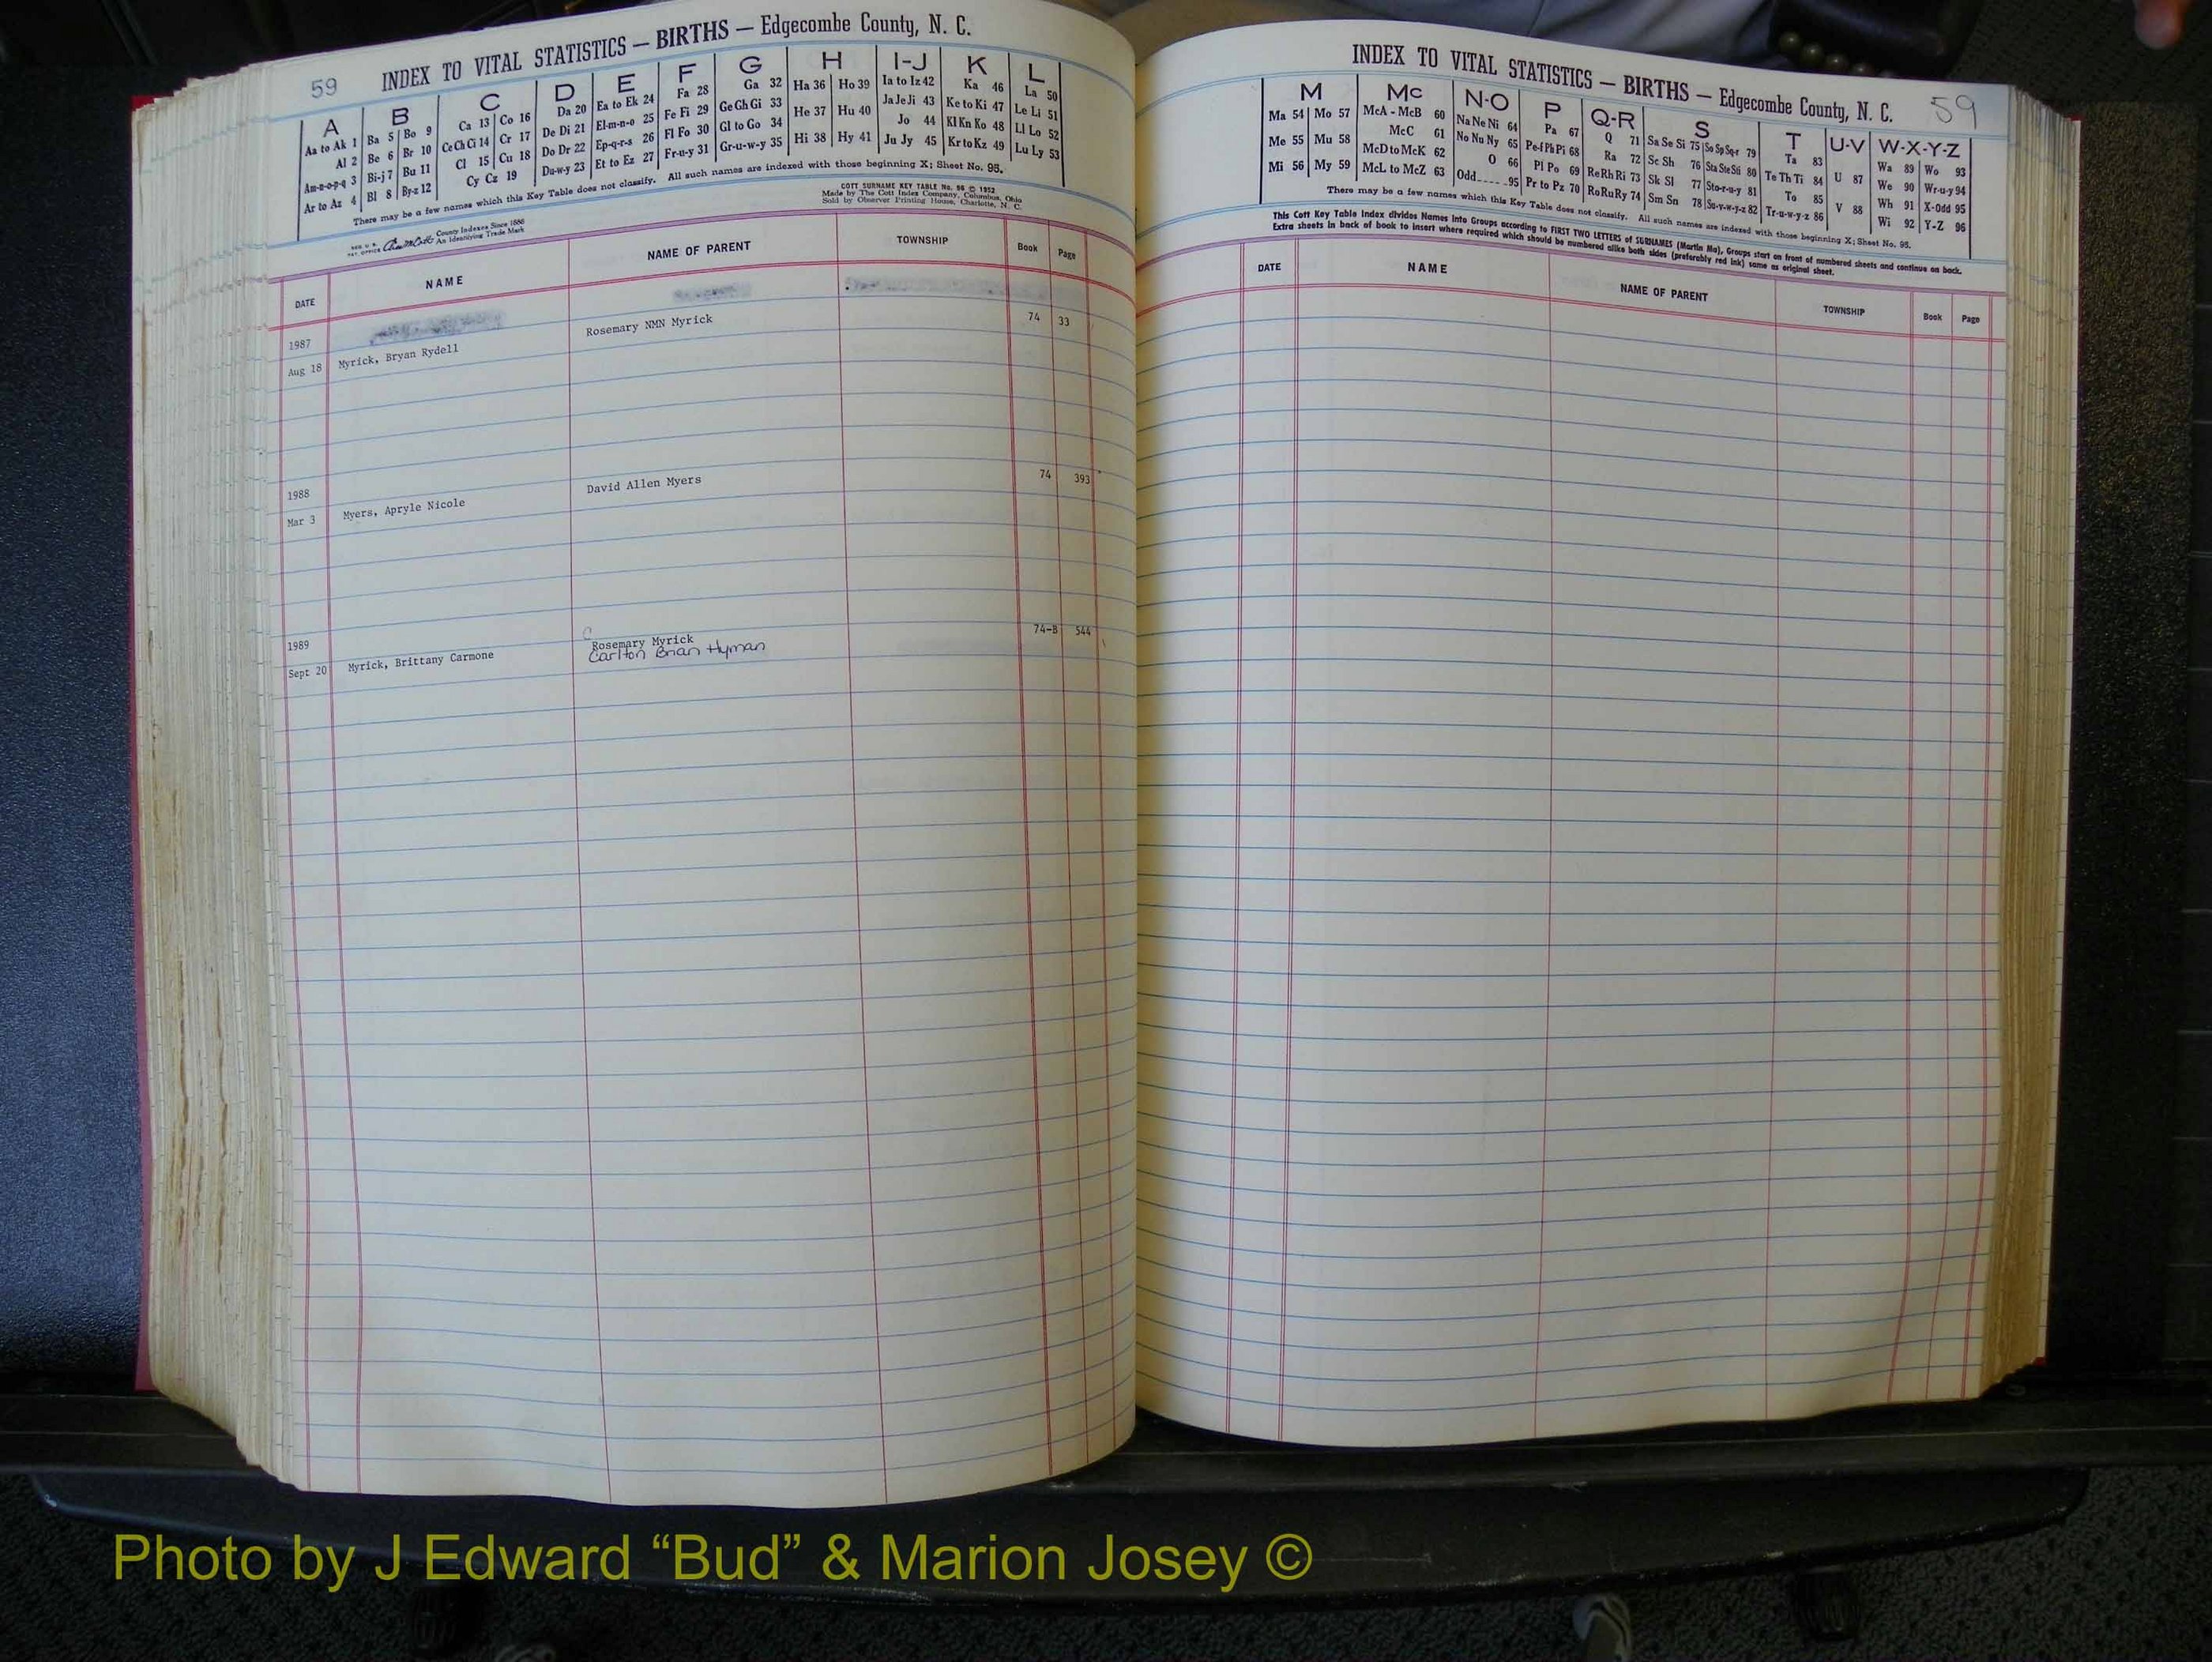 59 INDEX TO VITAL STATISTICS — BIRTHS — Edgecombe County, N. C.
A
Aa to Ak 1
Al 2
Am-n-o-p-q 3
Ar to Az 4
B
Ba 5 Bo 9
Be 6 Br 10
Bi-j 7 Bu 11
Bl 8 By-z 12
C
Ca 13 Co 16
Ce Ch Ci 14 Cr 17
Cl 15 Cu 18
Cy Cz 19
D
Da 20
De Di 21
Do Dr 22
Du-w-y 23
E
Ea to Ek 24
El-m-n-o 25
Ep-q-r-s 26
Et to Ez 27
F
Fa 28
Fe Fi 29
Fl Fo 30
Fr-u-y 31
G
Ga 32
Ge Gh Gi 33
Gl to Go 34
Gr-u-w-y 35
H
Ha 36 Ho 39
He 37 Hu 40
Hi 38 Hy 41
I-J
Ia to Iz 42
Ja Je Ji 43
Jo 44
Ju Jy 45
K
Ka 46
Ke to Ki 47
Kl Kn Ko 48
Kr to Kz 49
L
La 50
Le Li 51
Ll Lo 52
Lu Ly 53
There may be a few names which this Key Table does not classify. All such names are indexed with those beginning X; Sheet No. 95.
COTT SURNAME KEY TABLE No. 96 © 1952
Made by The Cott Index Company, Columbus, Ohio
Sold by Observer Printing House, Charlotte, N. C.
County Indexes Since 1888
An Identifying Trade Mark
DATE NAME NAME OF PARENT TOWNSHIP Book Page
1987
Aug 18 Myrick, Bryan Rydell Rosemary NMN Myrick 74 33
1988
Mar 3 Myers, Apryle Nicole David Allen Myers 74 393
1989
Sept 20 Myrick, Brittany Carmone Rosemary Myrick 74-B 544
Carlton Brian Hyman
INDEX TO VITAL STATISTICS — BIRTHS — Edgecombe County, N. C. 59
M
Ma 54 Mo 57
Me 55 Mu 58
Mi 56 My 59
Mc
McA - McB 60
McC 61
McD to McK 62
McL to McZ 63
N-O
Na Ne Ni 64
No Nu Ny 65
O 66
Odd 95
P
Pa 67
Pe-f Ph Pi 68
Pl Po 69
Pr to Pz 70
Q-R
Q 71
Ra 72
Re Rh Ri 73
Ro Ru Ry 74
S
Sa Se Si 75 So Sp Sq-r 79
Sc Sh 76 Sta Ste Sti 80
Sk Sl 77 Sto-r-u-y 81
Sm Sn 78 Su-v-w-y-z 82
T
Ta 83
Te Th Ti 84
To 85
Tr-u-w-y-z 86
U-V
U 87
V 88
W-X-Y-Z
Wa 89 Wo 93
We 90 Wr-u-y 94
Wh 91 X-Odd 95
Wi 92 Y-Z 96
There may be a few names which this Key Table does not classify. All such names are indexed with those beginning X; Sheet No. 95.
This Cott Key Table Index divides Names into Groups according to FIRST TWO LETTERS of SURNAMES (Martin Ma), Groups start on front of numbered sheets and continue on back.
Extra sheets in back of book to insert where required which should be numbered alike both sides (preferably red ink) same as original sheet.
DATE NAME NAME OF PARENT TOWNSHIP Book Page
Photo by J Edward “Bud” & Marion Josey ©